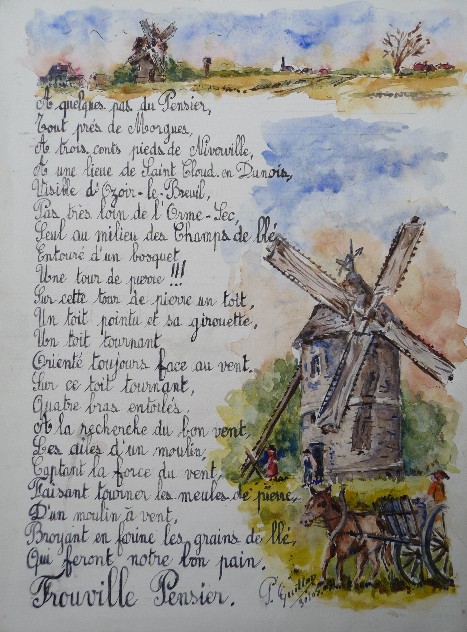 A quelques pas du Pensier,
Tout près de Morgues,
A trois cents pieds de Nivouville,
A une lieue de Saint Cloud en Dunois,
Visible d'Ozoir-le-Breuil,
Pas très loin de l'Orme-Sec,
Seul au milieu des Champs de blé
Entouré d'un bosquet
Une tour de pierre !!!
Sur cette tour de pierre un toit,
Un toit pointu et sa girouette,
Un toit tournant
Orienté toujours face au vent.
Sur ce toit tournant,
Quatre bras entoilés
A la recherche du bon vent,
Les ailes d'un moulin,
Captant la force du vent
Faisant tourner les meules de pierre,
D'un moulin à vent,
Broyant en farine les grains de blé,
Qui feront notre bon pain.
Frouville Pensier.